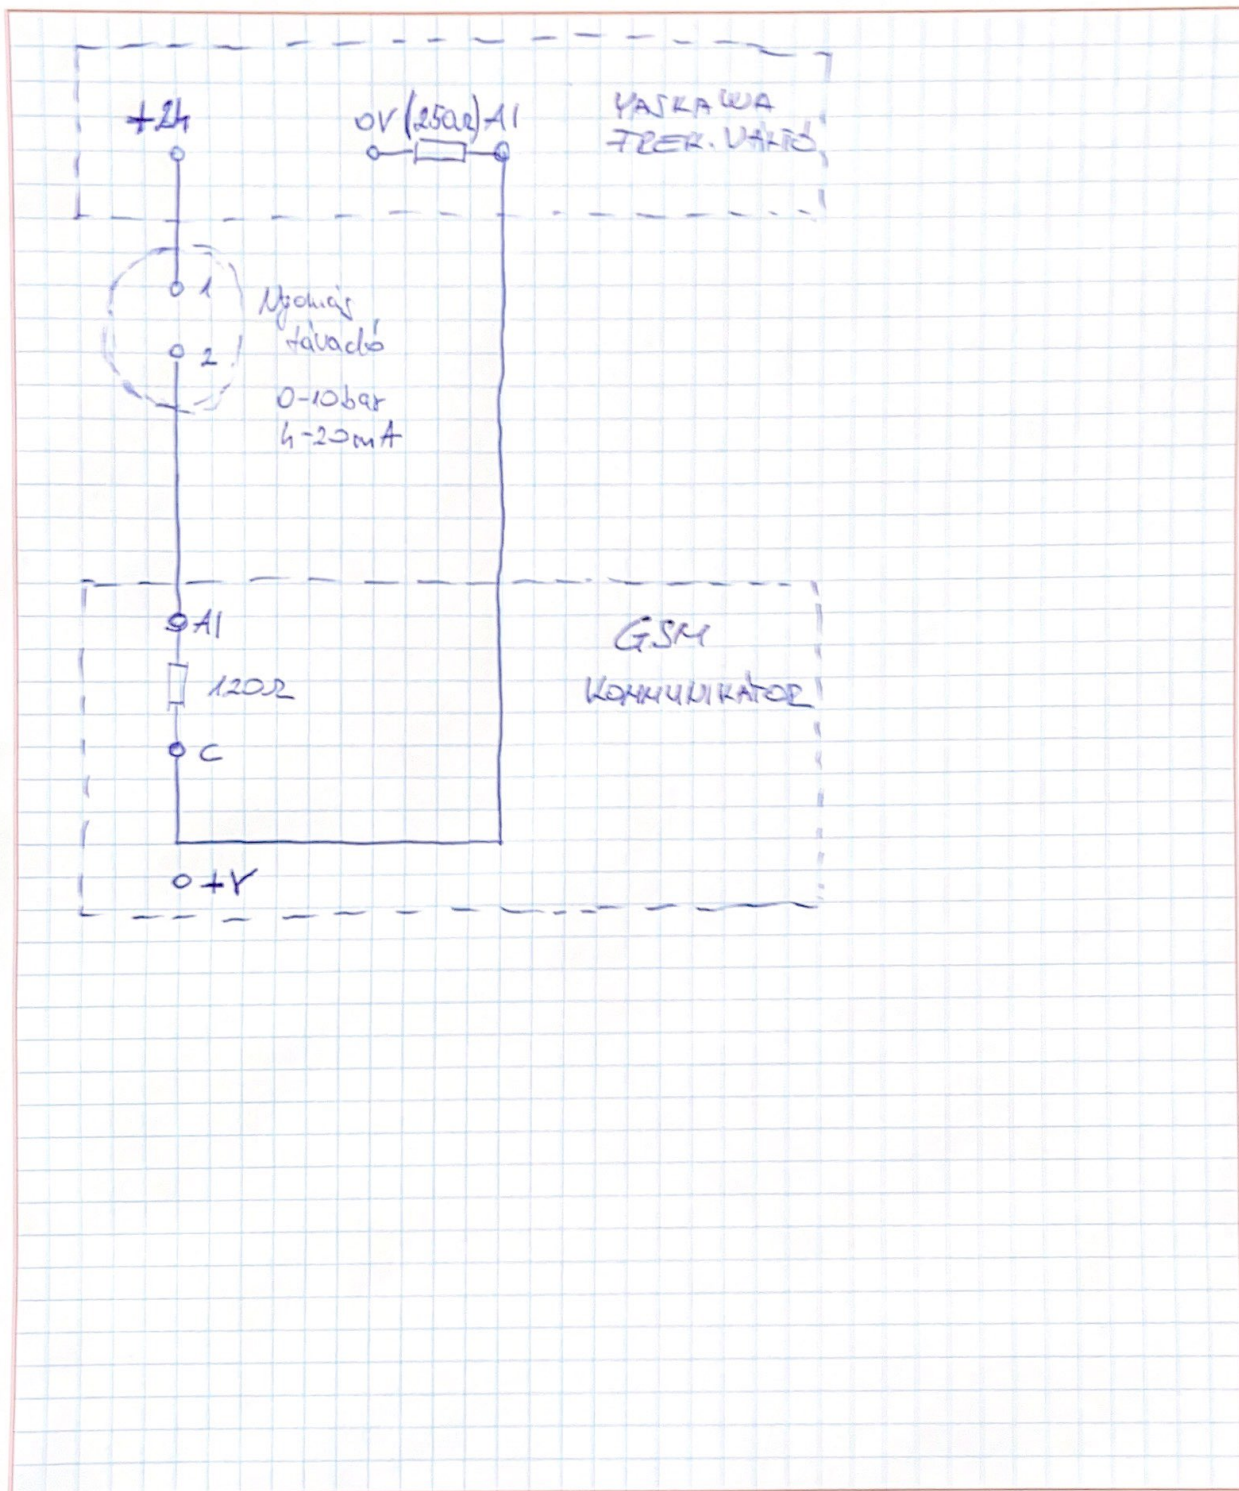 +24
0V (250Ω) AI
YASKAWA
FREK. VÁLTÓ
1
2
Nyomás
távadó
0-10bar
4-20mA
AI
120Ω
C
+V
GSM
KOMMUNIKÁTOR